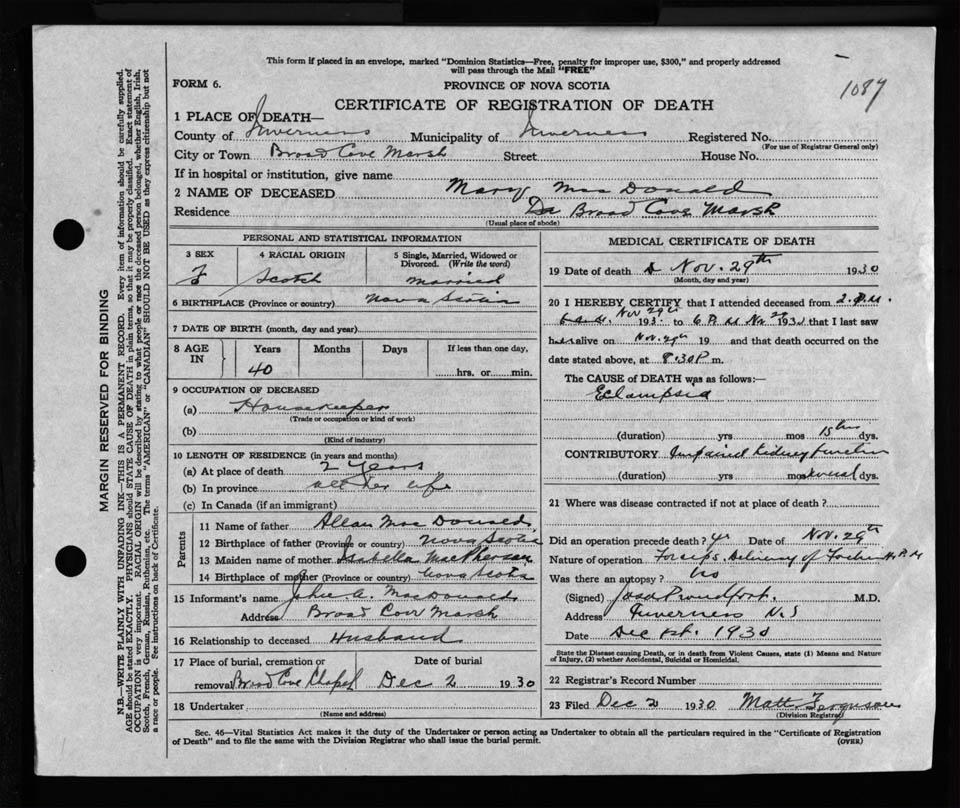 This form if placed in an envelope, marked "Dominion Statistics—Free, penalty for improper use, $300," and properly addressed
will pass through the Mail "FREE"
1087
FORM 6.
PROVINCE OF NOVA SCOTIA
CERTIFICATE OF REGISTRATION OF DEATH
1 PLACE OF DEATH—
County of Inverness Municipality of Inverness Registered No.
(For use of Registrar General only)
City or Town Broad Cove Marsh Street House No.
If in hospital or institution, give name
2 NAME OF DECEASED Mary MacDonald
Residence Broad Cove Marsh
(Usual place of abode)
PERSONAL AND STATISTICAL INFORMATION
3 SEX 4 RACIAL ORIGIN 5 Single, Married, Widowed or
Divorced. (Write the word)
F Scotch married
6 BIRTHPLACE (Province or country) Nova Scotia
7 DATE OF BIRTH (month, day and year)
8 AGE IN Years Months Days If less than one day,
40 hrs. or min.
9 OCCUPATION OF DECEASED
(a) Housekeeper
(Trade or occupation or kind of work)
(b)
(Kind of industry)
10 LENGTH OF RESIDENCE (in years and months)
(a) At place of death 2 years
(b) In province all her life
(c) In Canada (if an immigrant)
Parents
11 Name of father Allan MacDonald
12 Birthplace of father (Province or country) Nova Scotia
13 Maiden name of mother Isabella MacPherson
14 Birthplace of mother (Province or country) Nova Scotia
15 Informant's name John A. MacDonald
Address Broad Cove Marsh
16 Relationship to deceased Husband
17 Place of burial, cremation or Date of burial
removal Broad Cove Chapel Dec 2 1930
18 Undertaker
(Name and address)
MEDICAL CERTIFICATE OF DEATH
19 Date of death Nov. 29th 1930
(Month, day and year)
20 I HEREBY CERTIFY that I attended deceased from 2. P.M.
Nov 29th 193 to 6 P.M Nov 29 1930 that I last saw
her alive on Nov. 29th 19 and that death occurred on the
date stated above, at 8.30 P m.
The CAUSE of DEATH was as follows:—
Eclampsia
(duration) yrs mos 15 hrs dys.
CONTRIBUTORY Impaired Kidney function
(duration) yrs mos several dys.
21 Where was disease contracted if not at place of death?
Did an operation precede death? yes Date of Nov. 29th
Nature of operation Forceps Delivery of
Was there an autopsy? no
(Signed) Proudfoot M.D.
Address Inverness N.S
Date Dec 1st. 1930
State the Disease causing Death, or in death from Violent Causes, state (1) Means and Nature
of Injury, (2) whether Accidental, Suicidal or Homicidal.
22 Registrar's Record Number
23 Filed Dec 2 1930 Matt Ferguson
(Division Registrar)
Sec. 46—Vital Statistics Act makes it the duty of the Undertaker or person acting as Undertaker to obtain all the particulars required in the "Certificate of Registration
of Death" and to file the same with the Division Registrar who shall issue the burial permit.
(OVER)
MARGIN RESERVED FOR BINDING
N.B.—WRITE PLAINLY WITH UNFADING INK—THIS IS A PERMANENT RECORD. Every item of information should be carefully supplied.
AGE should be stated EXACTLY. PHYSICIANS should STATE CAUSE OF DEATH in plain terms, so that it may be properly classified. Exact statement of
OCCUPATION is very important. RACIAL ORIGIN will be described by stating to what people or race the deceased person belonged, whether English, Irish,
Scotch, French, German, Russian, Ruthenian, etc. The terms "AMERICAN" or "CANADIAN" SHOULD NOT BE USED as they express citizenship but not
a race or people. See instructions on back of Certificate.